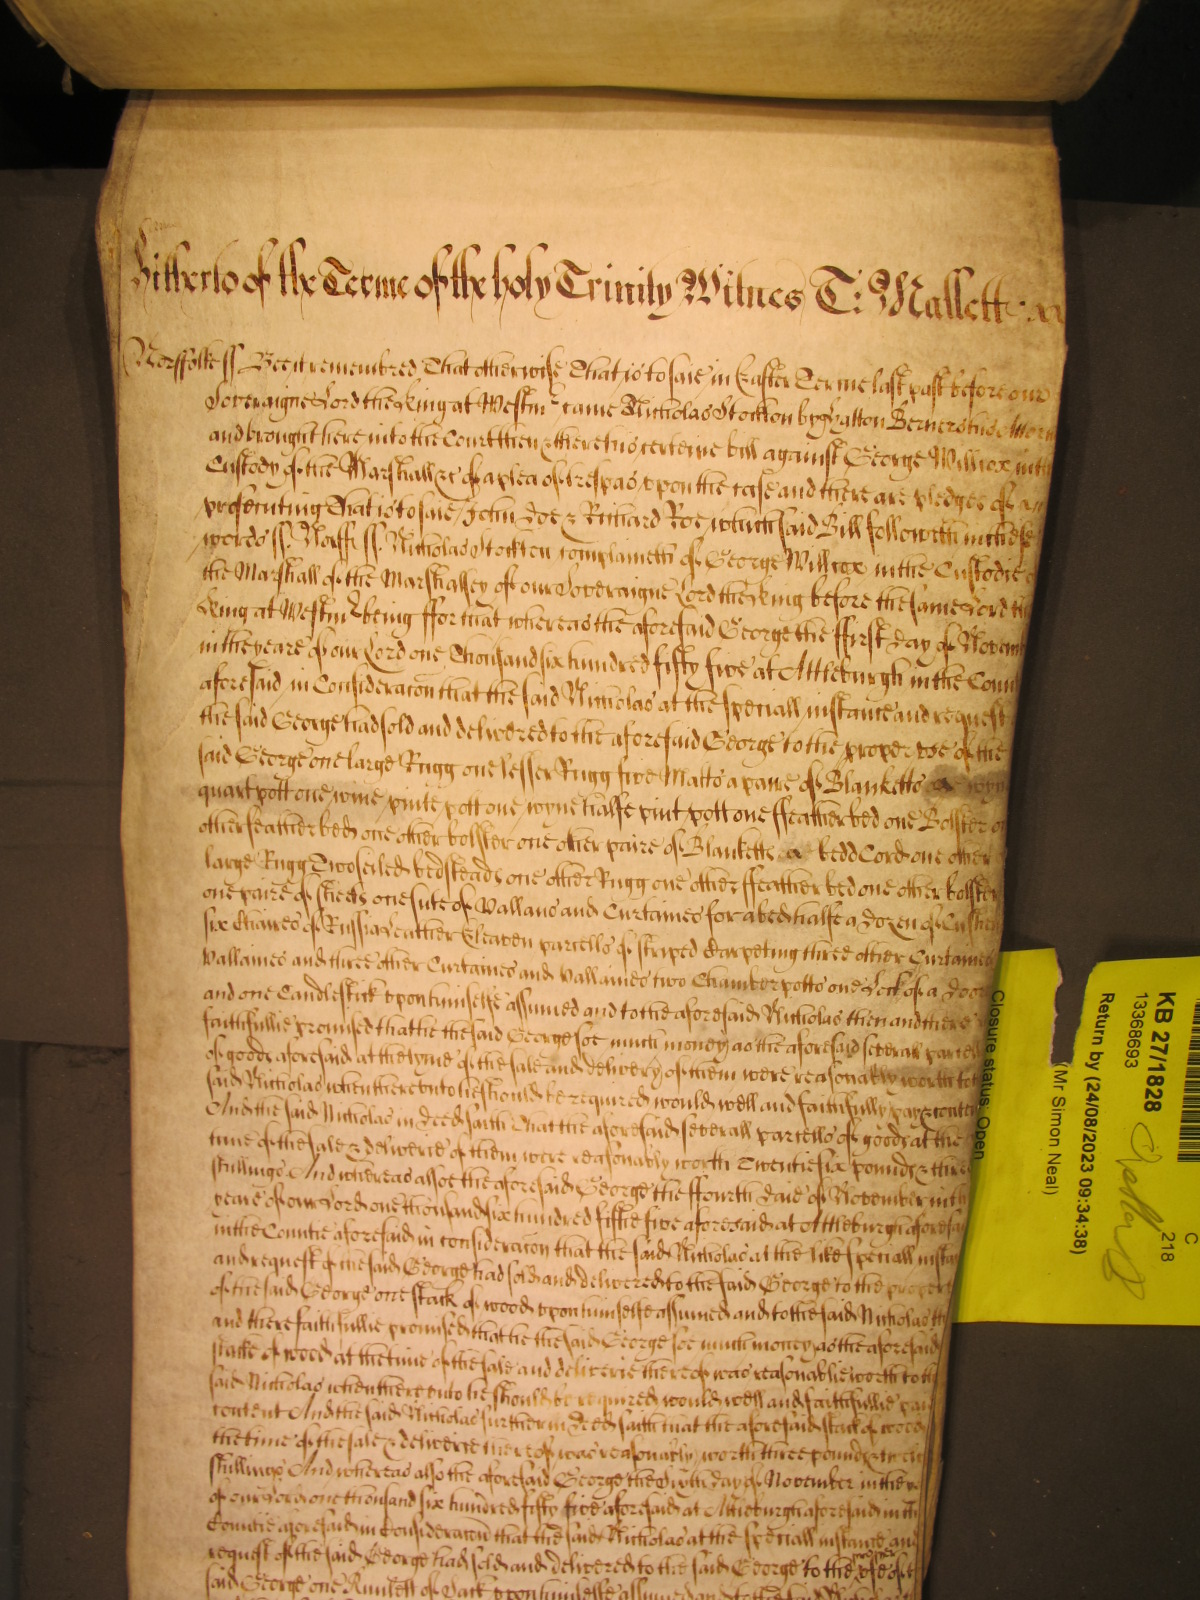 Hitherto of the Terme of the holy Trinity Witnes T: Mallett:
Norffolke ss Bee it remembred That otherwise That is to saie in Easter Terme last past before our
Soveraigne Lord the King at Westmr came Nicholas Stockton by Hatton Berners his Attorn
and brought here into the Court then & there his certeine bill against George Willcox in th
Custody of the Marshall &c of a plea of trespas upon the case and there are pledges of
prosecuting That is to saie John Doe & Richard Roe which said Bill followeth in these
words ss. Norff ss. Nicholas Stockton complaineth of George Willcox in the Custodie
the Marshall of the Marshallsey of our Soveraigne Lord the King before the same Lord th
King at Westmr being ffor that whereas the aforesaid George the ffirst day of Novemb
in the yeare of our Lord one Thousand six hundred fifty five at Attleburgh in the Coun
aforesaid in Consideracon that the said Nicholas at the speciall instance and request
the said George had sold and delivered to the aforesaid George to the proper use of the
said George one large Rugg one lesser Rugg five Matts a paire of Blanketts wyn
quart pott one wine pinte pott one wyne halfe pint pott one ffeather bed one Bolster
other feather bed one other bolster one other paire of Blanketts a bedd Cord one other
large Rugg Two seiled bedsteads one other Rugg one other ffeather bed one other bolster
one paire of sheets one sute of Vallans and Curtaines for a bed halfe a dozen of Cushi
six Chaires of Russia Leather Eleaven parcells of striped Carpeting three other Curtaines
Vallaines and three other Curtaines and Vallaines two Chamber potts one Lock of a doore
and one Candlestick upon himselfe assumed and to the aforesaid Nicholas then and there
faithfullie promised that he the said George soe much money as the aforesaid severall parcell
of goods aforesaid at the tyme of the sale and delivery of them were reasonably worth to th
said Nicholas when thereunto he should be required would well and faithfully pay & conten
And the said Nicholas in Deed saith That the aforesaid severall parcells of goods at the
time of the sale & deliverie of them were reasonably worth Twentie six pounds & three
shillings And whereas alsoe the aforesaid George the ffourth daie of November in th
yeare of our Lord one thousand six hundred fiftie five aforesaid at Attleburgh aforesai
in the Countie aforesaid in consideracon that the said Nicholas at the like speciall instan
and request of the said George had sold and delivered to the said George to the proper
of the said George one stack of wood upon himselfe assumed and to the said Nicholas th
and there faithfullie promised that he the said George soe much money as the aforesaid
stacke of wood at the time of the sale and deliverie thereof was reasonablie worth to th
said Nicholas when thereunto he should be required would well and faithfullie pai
content And the said Nicholas further in Deed saith that the aforesaid stack of wood
the time of the sale & deliverie thereof was reasonably worth three pounds
shillings And whereas also the aforesaid George the Sixth day of November in the ye
of our Lord one thousand six hundred fifty five aforesaid at Attleburgh aforesaid in th
Countie aforesaid in Consideracon that the said Nicholas at the speciall instance and
request of the said George had sold and delivered to the said George to the proper use of
said George one Runlett of Sack upon himselfe assumed and to the said Nicholas
KB 27/1828
13368693
Return by (24/08/2023 09:34:38)
(Mr Simon Neal)
Closure status: Open
C
218